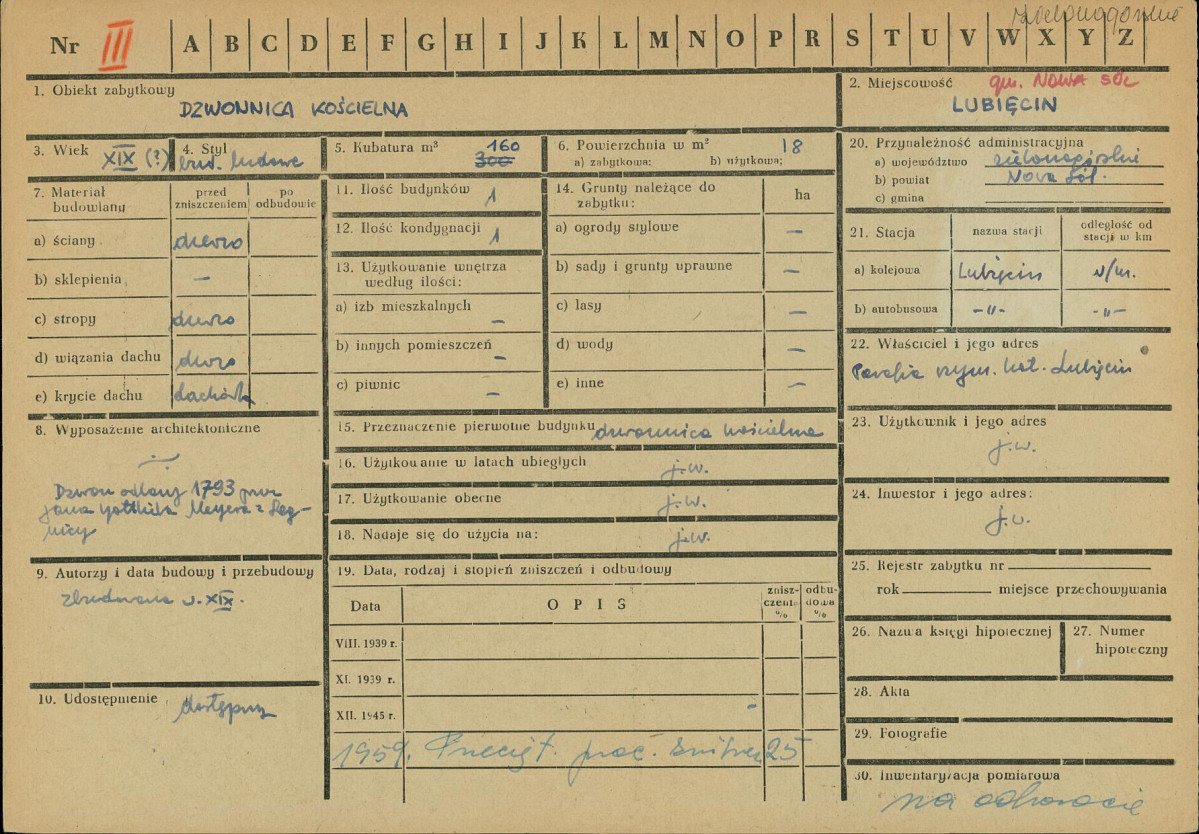 zielonogórskie
Nr III A B C D E F G H I J K L M N O P R S T U V W X Y Z
1. Obiekt zabytkowy
DZWONNICA KOŚCIELNA
2. Miejscowość gm. NOWA SÓL
LUBIĘCIN
3. Wiek XIX (?)
4. Styl
bud. ludowe
5. Kubatura m³ 160
300
6. Powierzchnia w m² 18
a) zabytkowa: b) użytkowa;
7. Materiał budowlany
przed zniszczeniem
po odbudowie
a) ściany drewno
b) sklepienia —
c) stropy drewno
d) wiązania dachu drewno
e) krycie dachu dachówka
8. Wyposażenie architektoniczne
Dzwon odlany 1793 przez
Jana Gottlieba Meyera z Leg-
nicy
9. Autorzy i data budowy i przebudowy
zbudowana w. XIX.
10. Udostępnienie dostępny
11. Ilość budynków 1
12. Ilość kondygnacji 1
13. Użytkowanie wnętrza
według ilości:
a) izb mieszkalnych —
b) innych pomieszczeń —
c) piwnic —
14. Grunty należące do
zabytku: ha
a) ogrody stylowe —
b) sady i grunty uprawne —
c) lasy —
d) wody —
e) inne —
15. Przeznaczenie pierwotne budynku dzwonnica kościelna
16. Użytkowanie w latach ubiegłych j.w.
17. Użytkowanie obecne j.w.
18. Nadaje się do użycia na: j.w.
19. Data, rodzaj i stopień zniszczeń i odbudowy
Data OPIS zniszczenie % odbudowa %
VIII. 1939 r.
XI. 1939 r.
XII. 1945 r. -
1959. 25
20. Przynależność administracyjna
a) województwo zielonogórskie
b) powiat Nowa Sól.
c) gmina
21. Stacja nazwa stacji odległość od stacji w km
a) kolejowa Lubięcin w/m.
b) autobusowa —"— —"—
22. Właściciel i jego adres
Parafia rzym. kat. Lubięcin
23. Użytkownik i jego adres
j.w.
24. Inwestor i jego adres:
j.w.
25. Rejestr zabytku nr
rok miejsce przechowywania
26. Nazwa księgi hipotecznej
27. Numer
hipoteczny
28. Akta
29. Fotografie
30. Inwentaryzacja pomiarowa
na odwrocie